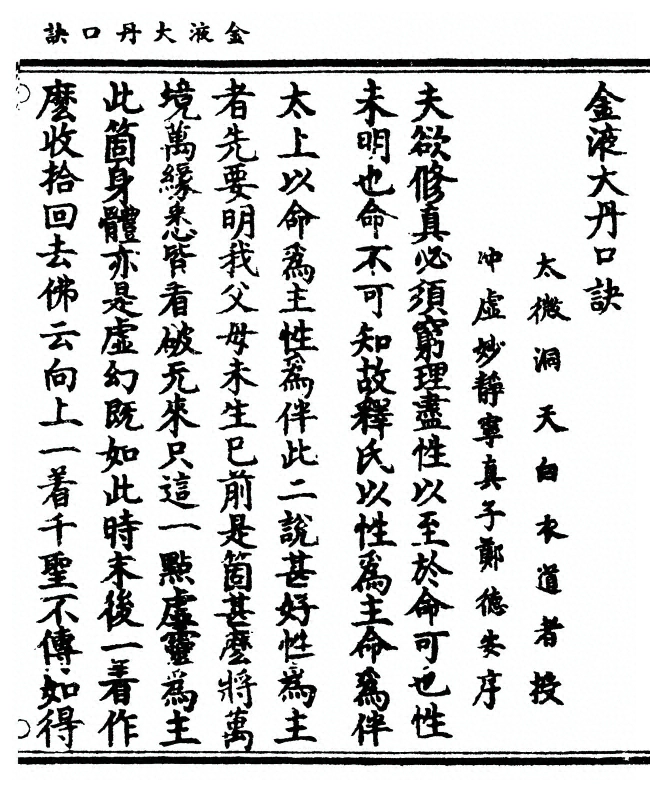 金液大丹口訣
金液大丹口訣
太微洞天白衣道者授
冲虛妙靜寧真子鄭德安序
夫欲修真必須窮理盡性以至於命可也性
未明也命不可知故釋氏以性爲主命爲伴
太上以命爲主性爲伴此二說甚好性爲主
者先要明我父母未生已前是箇甚麼將萬
境萬緣悉皆看破元來只這一點虛靈爲主
此箇身體亦是虛幻既如此時末後一着作
麼收拾回去佛云向上一着千聖不傳如得